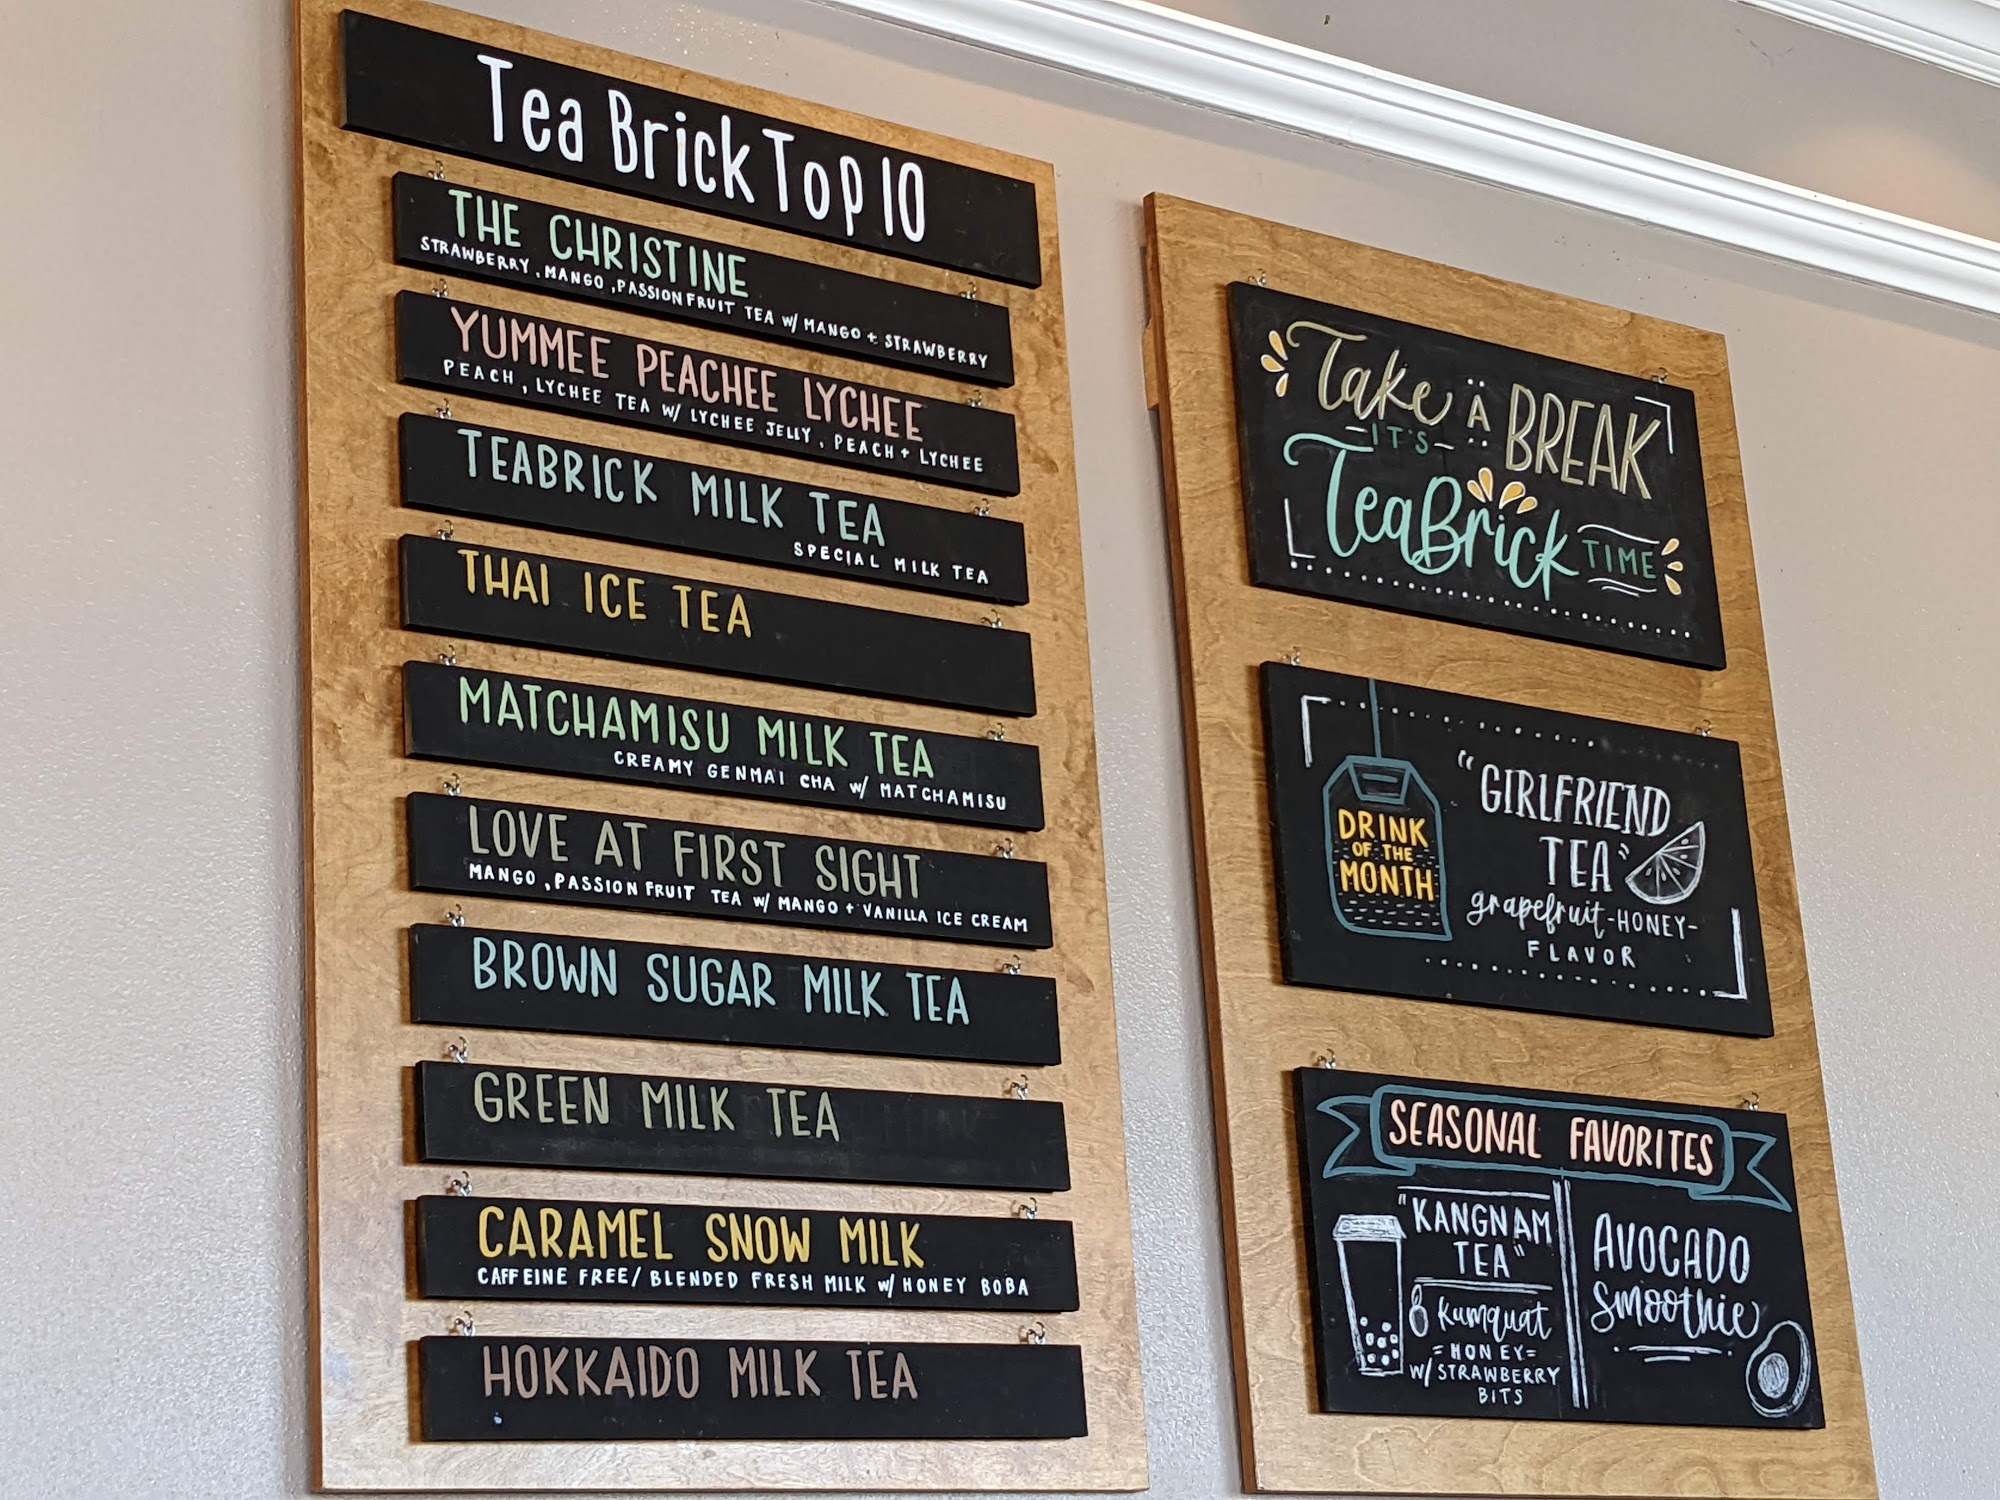 Tea Brick Top 10
THE CHRISTINE
STRAWBERRY, MANGO, PASSION FRUIT TEA W/ MANGO + STRAWBERRY
YUMMEE PEACHEE LYCHEE
PEACH, LYCHEE TEA W/ LYCHEE JELLY, PEACH + LYCHEE
TEABRICK MILK TEA
SPECIAL MILK TEA
THAI ICE TEA
MATCHAMISU MILK TEA
CREAMY GENMAI CHA W/ MATCHAMISU
LOVE AT FIRST SIGHT
MANGO, PASSION FRUIT TEA W/ MANGO + VANILLA ICE CREAM
BROWN SUGAR MILK TEA
GREEN MILK TEA
CARAMEL SNOW MILK
CAFFEINE FREE/ BLENDED FRESH MILK W/ HONEY BOBA
HOKKAIDO MILK TEA
Take A BREAK
-IT'S-
TeaBrick TIME
DRINK
OF THE
MONTH
"GIRLFRIEND
TEA"
grapefruit-HONEY-
FLAVOR
SEASONAL FAVORITES
"KANGNAM
TEA"
Kumquat
=HONEY=
W/ STRAWBERRY
BITS
AVOCADO
Smoothie